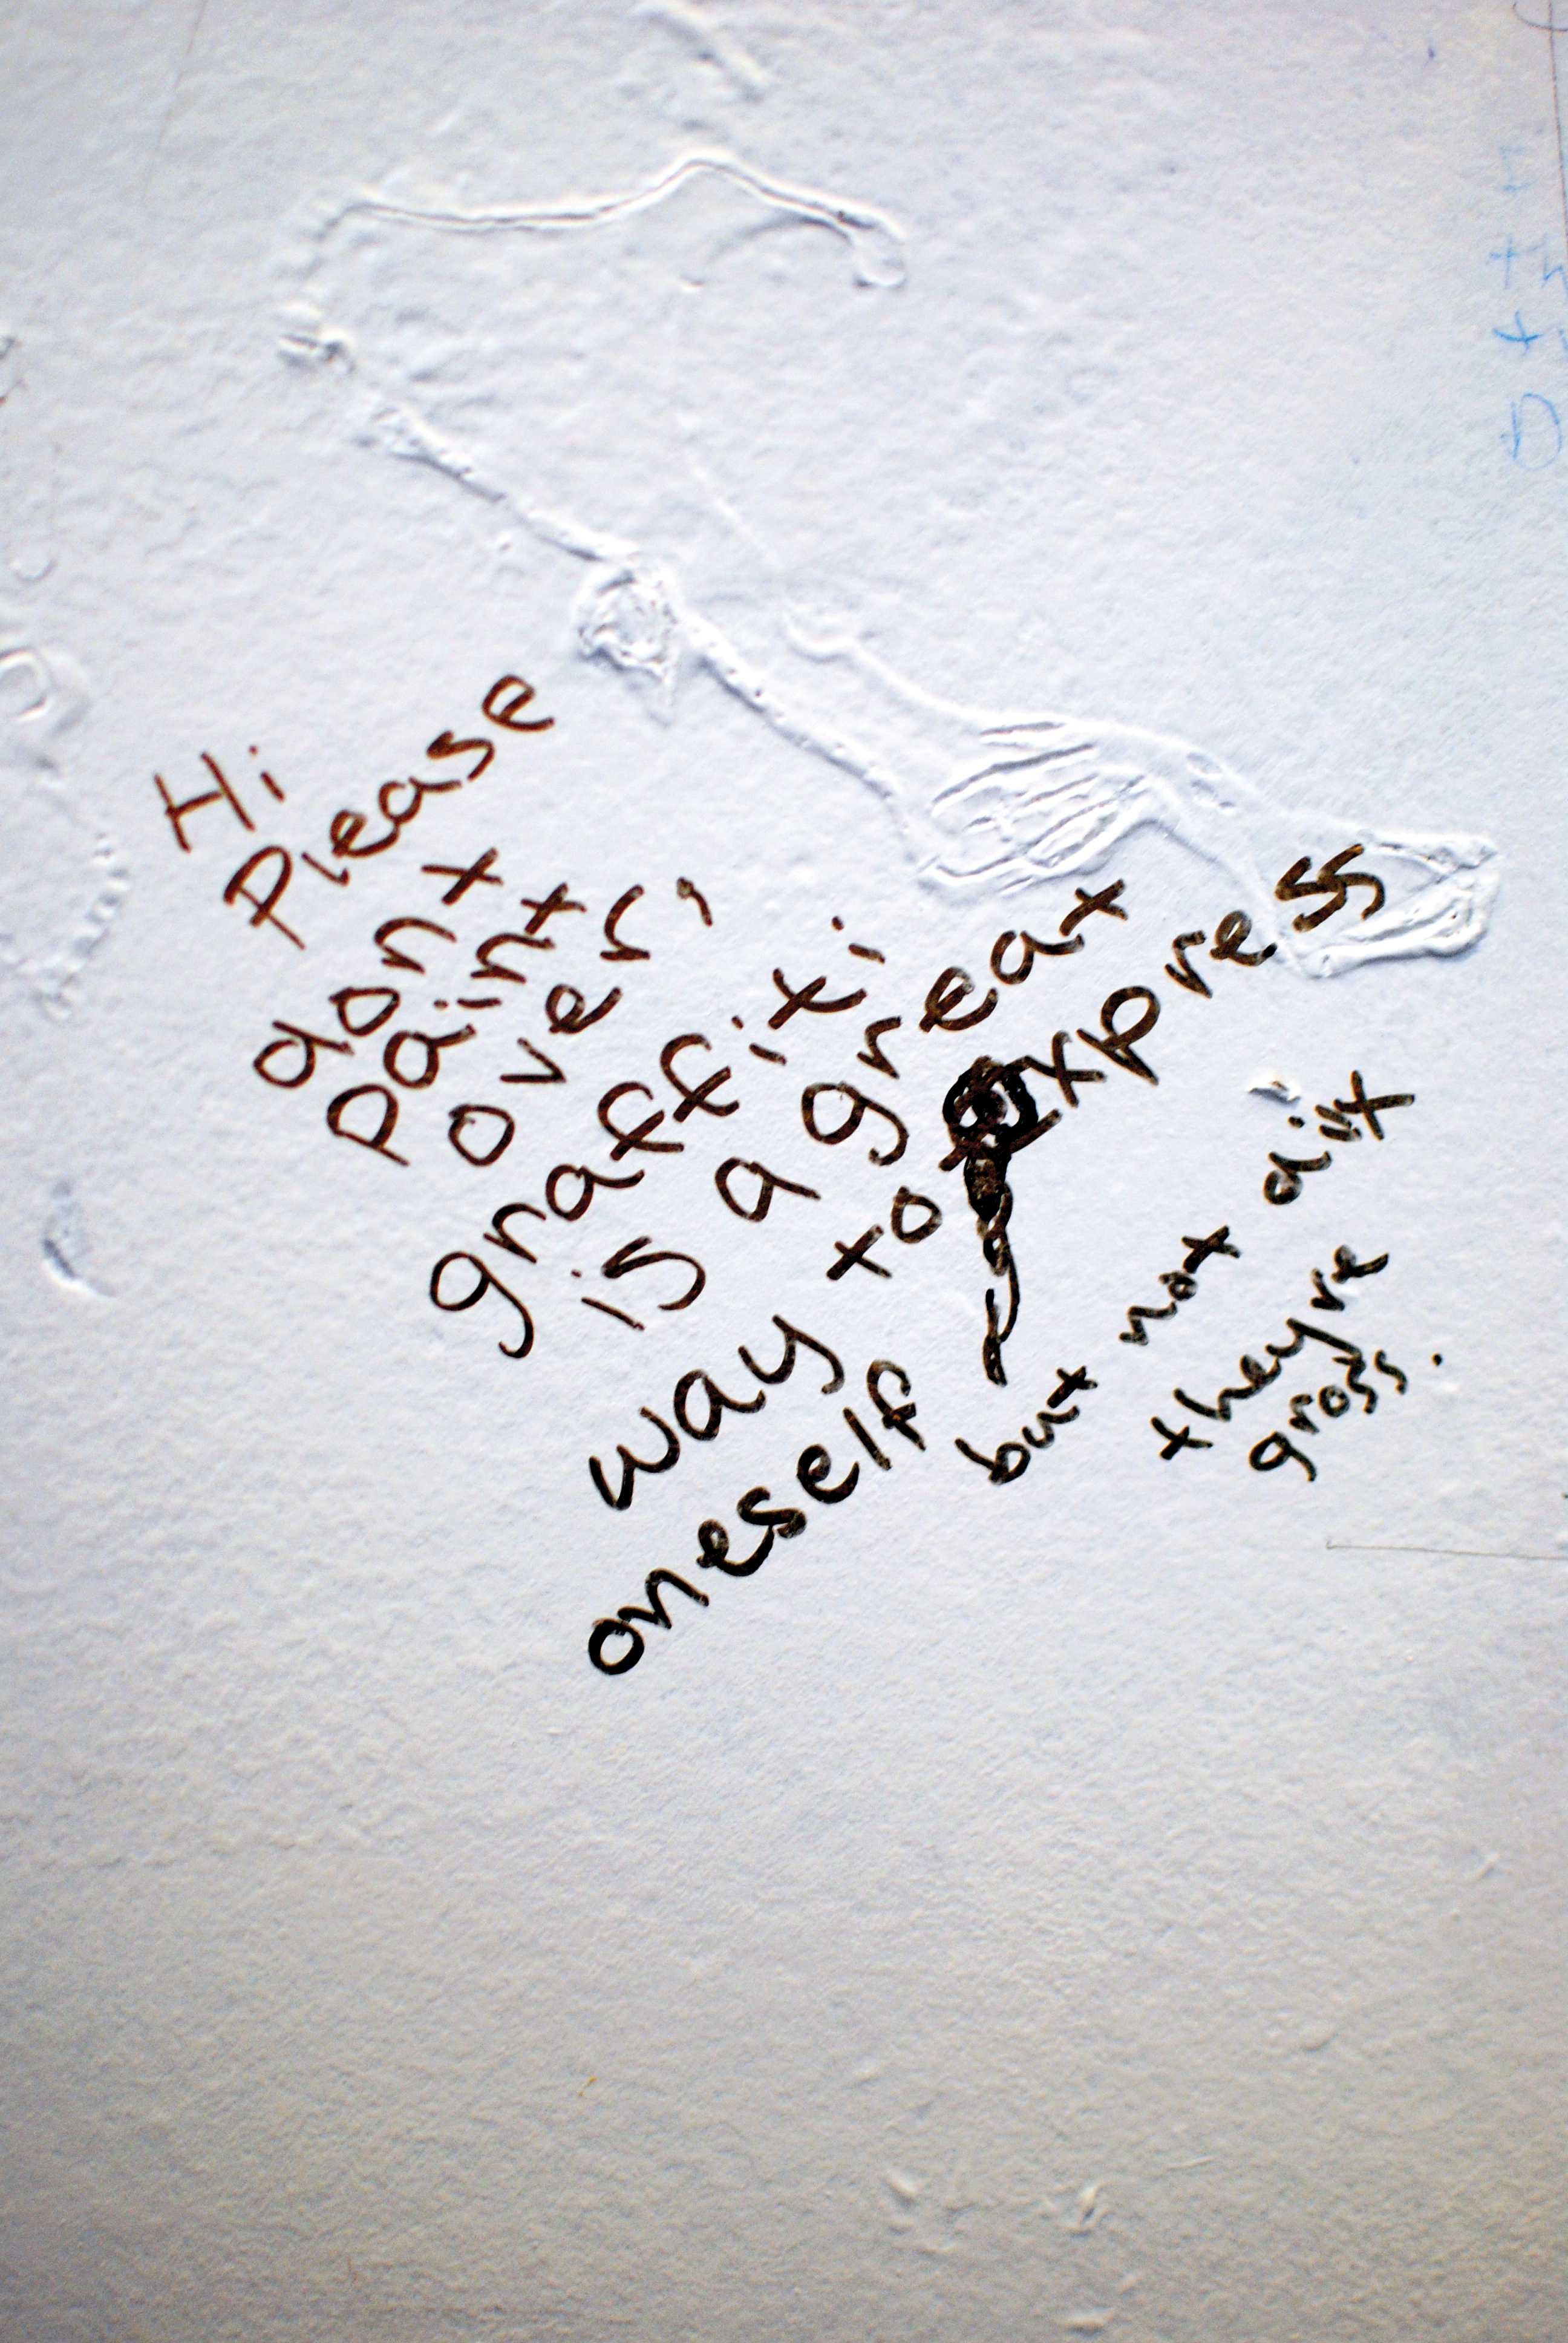 Hi
Please
dont
paint
over,
graffiti
is a great
way to express
oneself
but not
theyre
gross.